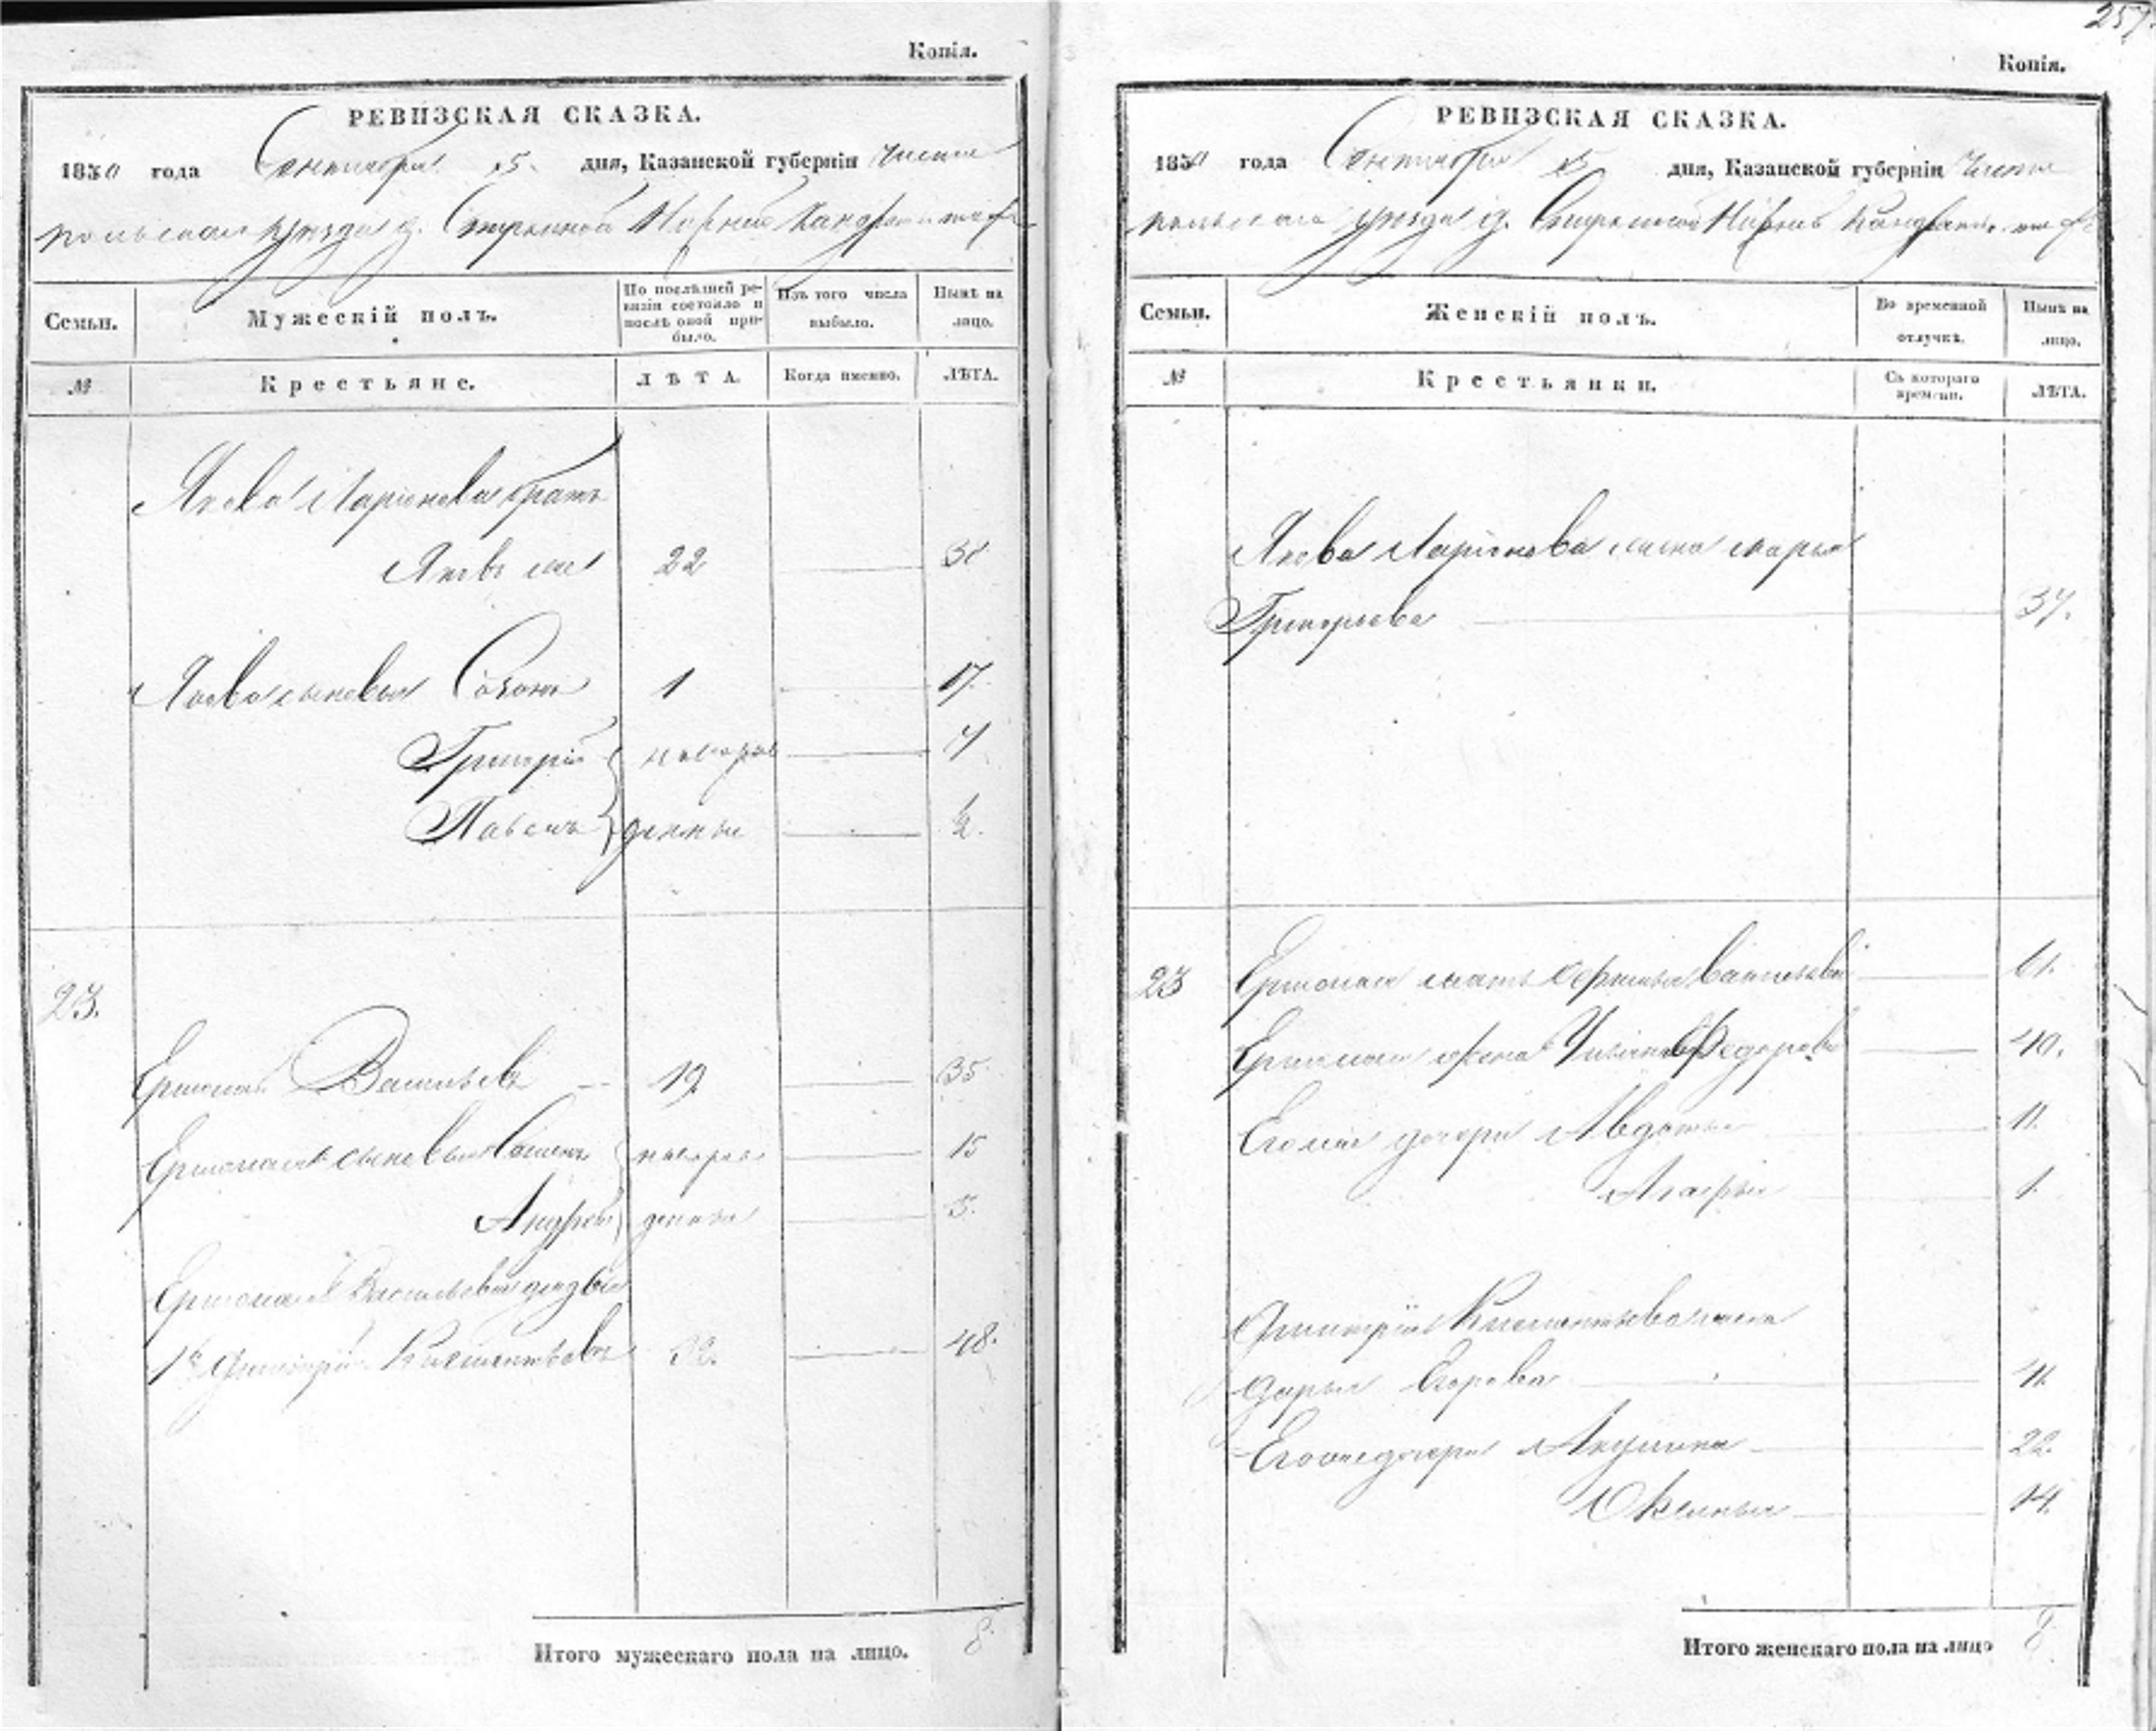 Копія.
РЕВИЗСКАЯ СКАЗКА.
1850 года Сентября 15 дня, Казанской губерніи Чисто
польскаго уѣзда д.
Семьи.
Мужескій полъ.
По послѣдней ре-
визіи состояло и
послѣ оной при-
было.
Изъ того числа
выбыло.
Нынѣ на
лицо.
№
Крестьяне.
ЛѢТА.
Когда именно.
ЛѢТА.
Якова Ларіонова братъ
Яковъ 22 38
Якова сыновья Созонъ 1 17.
Григорій новорож 7
Павелъ денные ½.
23.
Ермолай Васильевъ 19 35
Ермолая сыновья новорож 15
Андрей денные 3.
Ермолая Васильева дядья
1й Дмитрій 32. 48.
Итого мужескаго пола на лицо. 8.
257.
Копія.
РЕВИЗСКАЯ СКАЗКА.
1850 года Сентября 15 дня, Казанской губерніи Чисто
польскаго уѣзда д.
Семьи.
Женскій полъ.
Во временной
отлучкѣ.
Нынѣ на
лицо.
№
Крестьянки.
Съ котораго
времени.
ЛѢТА.
Якова Ларіонова жена Марья
Григорьева 37.
23 Ермолая мать Васильева 61.
Ермолая жена Федорова 40.
Его же дочери Авдотья 11.
Агафья 1.
Дмитрія жена
Дарья Егорова 41.
Его же дочери Акулина 22.
Оксинья 14.
Итого женскаго пола на лицо 8.